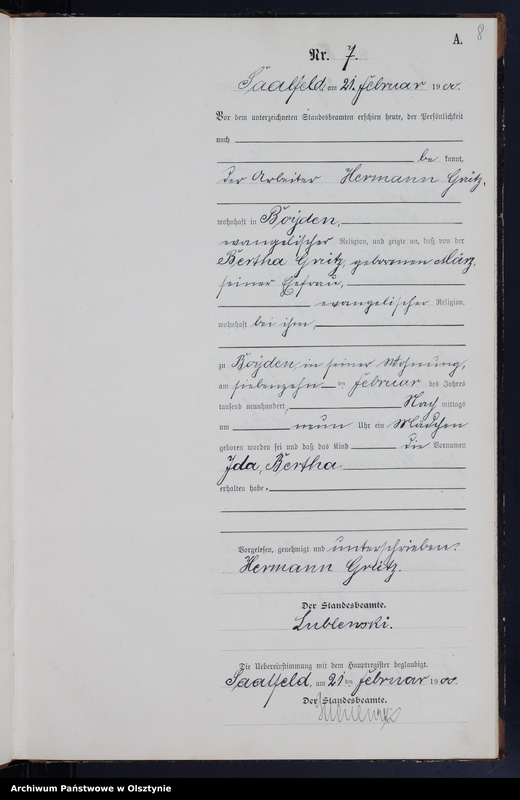 8
A.
Nr. 7.
Saalfeld, am 21. Februar 1900.
Vor dem unterzeichneten Standesbeamten erschien heute, der Persönlichkeit
nach
be kannt,
der Arbeiter Hermann Grütz,
wohnhaft in Boyden,
evangelischer Religion, und zeigte an, daß von der
Bertha Grütz, geborenen März,
seiner Ehefrau,
evangelischer Religion,
wohnhaft bei ihm,
zu Boyden, in seiner Wohnung,
am siebenzehn ten Februar des Jahres
tausend neunhundert Nach mittags
um neun Uhr ein Mädchen
geboren worden sei und daß das Kind die Vornamen
Ida, Bertha
erhalten habe.
Vorgelesen, genehmigt und unterschrieben.
Hermann Grütz.
Der Standesbeamte.
Lublewski.
Die Uebereinstimmung mit dem Hauptregister beglaubigt.
Saalfeld, am 21 ten Februar 1900.
Der Standesbeamte.
Archiwum Państwowe w Olsztynie